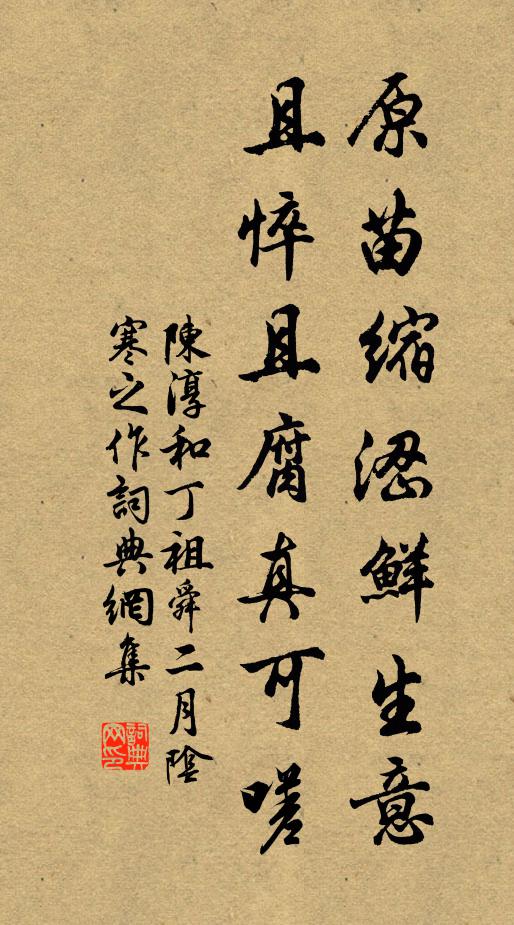 原苗縮濇鮮生意
且悴且腐真可嗟
陳淳和丁祖舜二月陰
寒之作詞典網集